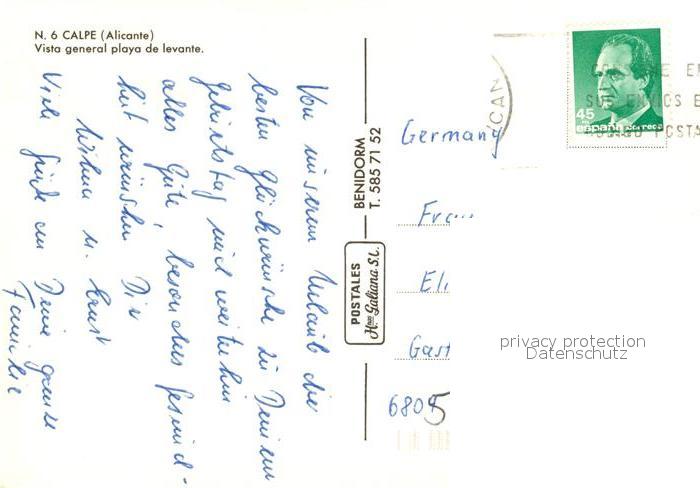 N. 6 CALPE (Alicante)
Vista general playa de levante.
Von unserem Urlaub die
besten Glückwünsche zu Deinem
Geburtstag und weiterhin
alles Gute, besonders Gesund-
heit wünschen Dir
Wilma u. Ernst
Viele Grüße an Deine ganze
Familie
BENIDORM
T. 585 71 52
POSTALES
Hnos Galiana S.L.
45
españa correos
Germany
Fr
El
Gast
6805
privacy protection
Datenschutz